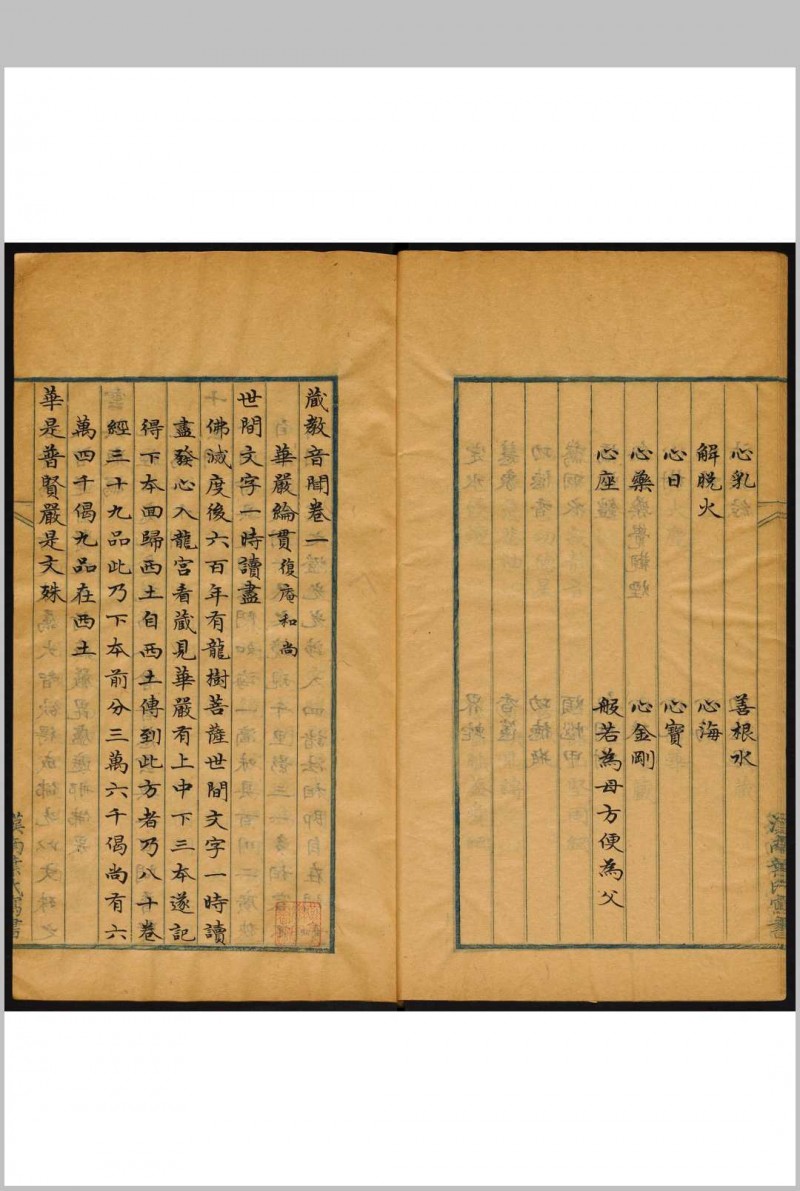 心乳　善根水
解脱火　心海
心日　心寶
心藥　心金剛
心座　般若為母方便為父
藏教音聞卷一
華嚴綸貫 復庵和尚
世間文字一時讀盡
佛滅度後六百年有龍樹菩薩世間文字一時讀
盡發心入龍宮看藏見華嚴有上中下三本遂記
得下本回歸西土自西土傳到此方者乃八十卷
經三十九品此乃下本前分三萬六千偈尚有六
萬四千偈九品在西土
華是普賢嚴是文殊